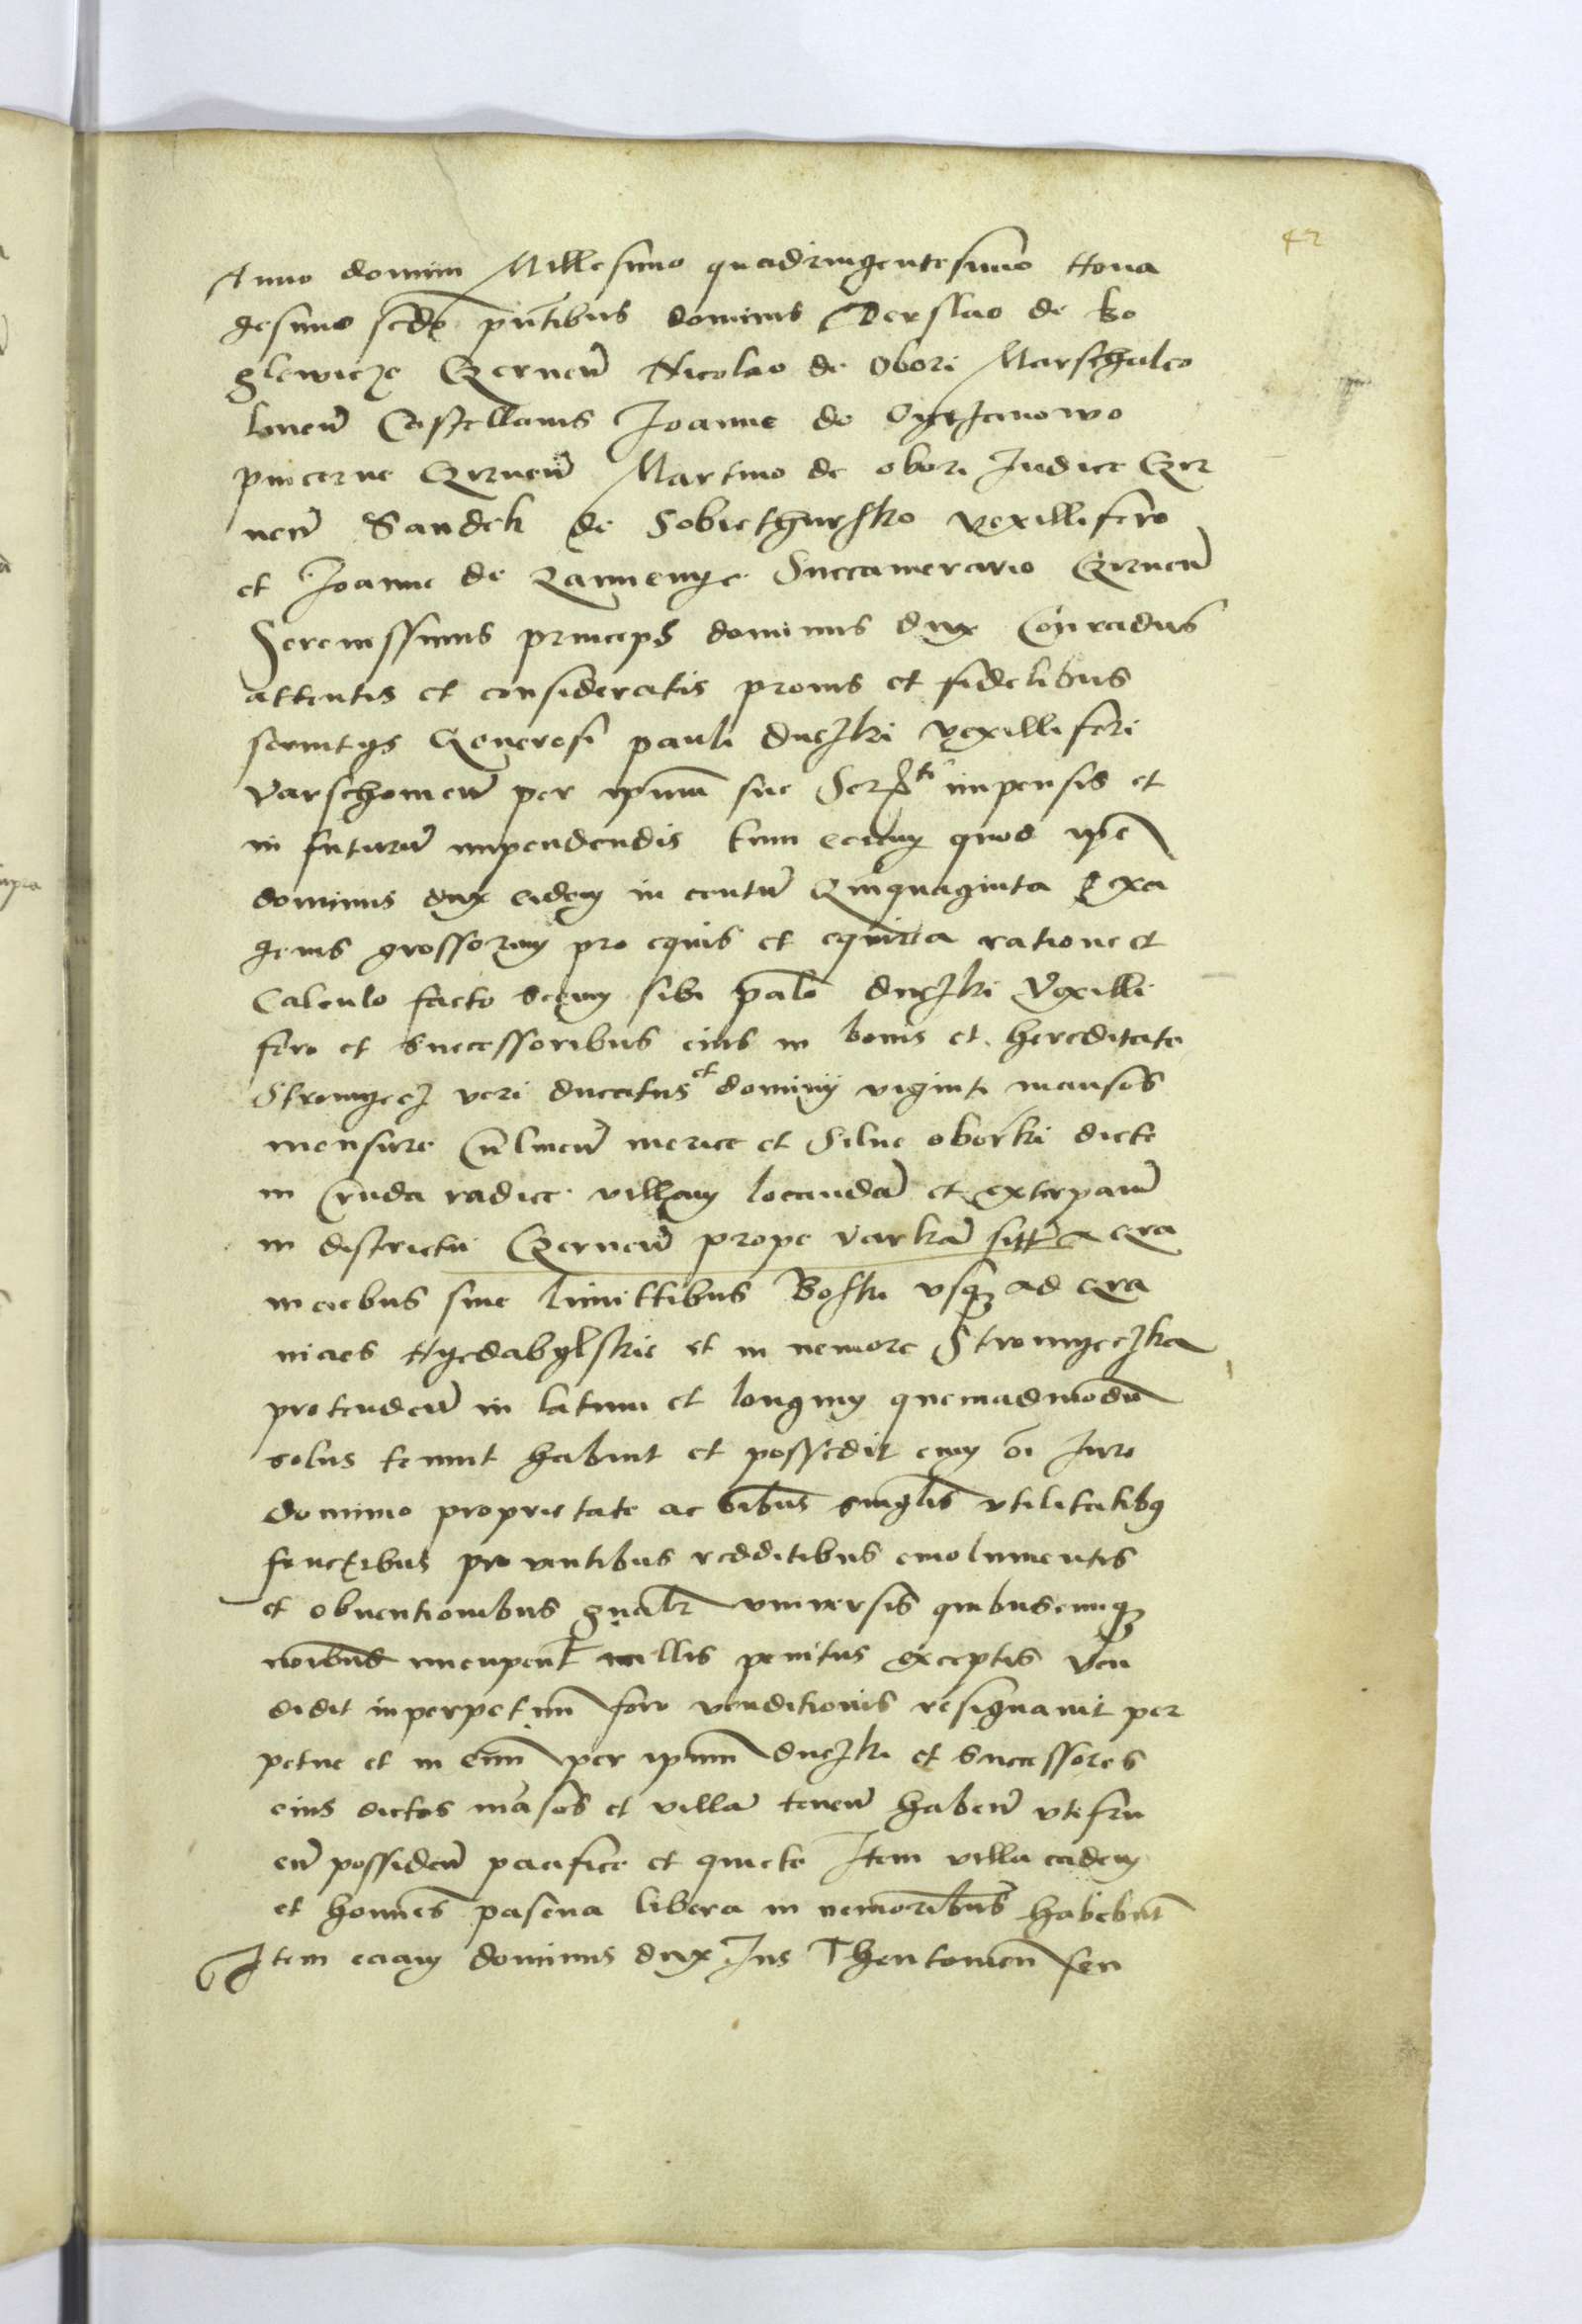 42
Anno domini Millesimo quadringentesimo Nona
gesimo scdo pntibus dominis Derslao de Ko
glewicze Czernen Nicolao de Obori Marschalco
Liven Castellanis Joanne de Oyczanowo
pincerne Czrnen Martino de obori Judice Czer
nen Sandek de Sobiethursko vexillifero
et Joanne de Lamenye Succamerario Czrnen
Serenissimus princeps dominus dux Conradus
attentis et consideratis pronis et fidelibus
servitys Generosi pauli duczki vexilliferi
varschowien per ipsum sue Serti impensis et
in futuru impendendis tum eciam quod ipse
dominus dux eidem in centu Quinquaginta sexa
genis grossorum pro equis et equirea ratione et
calculo facto secum sibi paulo duczki vexilli
fero et successoribus eius in bonis et hereditate
Stromyecz veri ducatus et dominij viginti mansos
mensure Culmen merice et Silve oborki dicte
in cruda radice villam locanda et exterpan
in districtu Czernen prope varka sitt a gra
niciebus sive limittibus Boski vsq ad gra
nices Nyedabylskie et in nemore Stromyeczka
protenden in latum et longum quemadmodu
solus tenuit habuit et possedit cum oi Jure
dominio proprietate ac oibus singlis vtilitatibq
fructibus proventibus redditibus emolumentis
et obventionibus gnalr vniversis quibuscumq
noibus nucupent nullis penitus exceptis ven
didit inperpetuu foro venditionis resignavit per
petue et in evum per ipsum duczki et successores
eius dictos masos et villa tenen haben vtifru
en possiden pacifice et quiete Item villa eadem
et homines pascua libera in nemoribus habebut
Item eciam dominus dux Jus Theutonicu seu